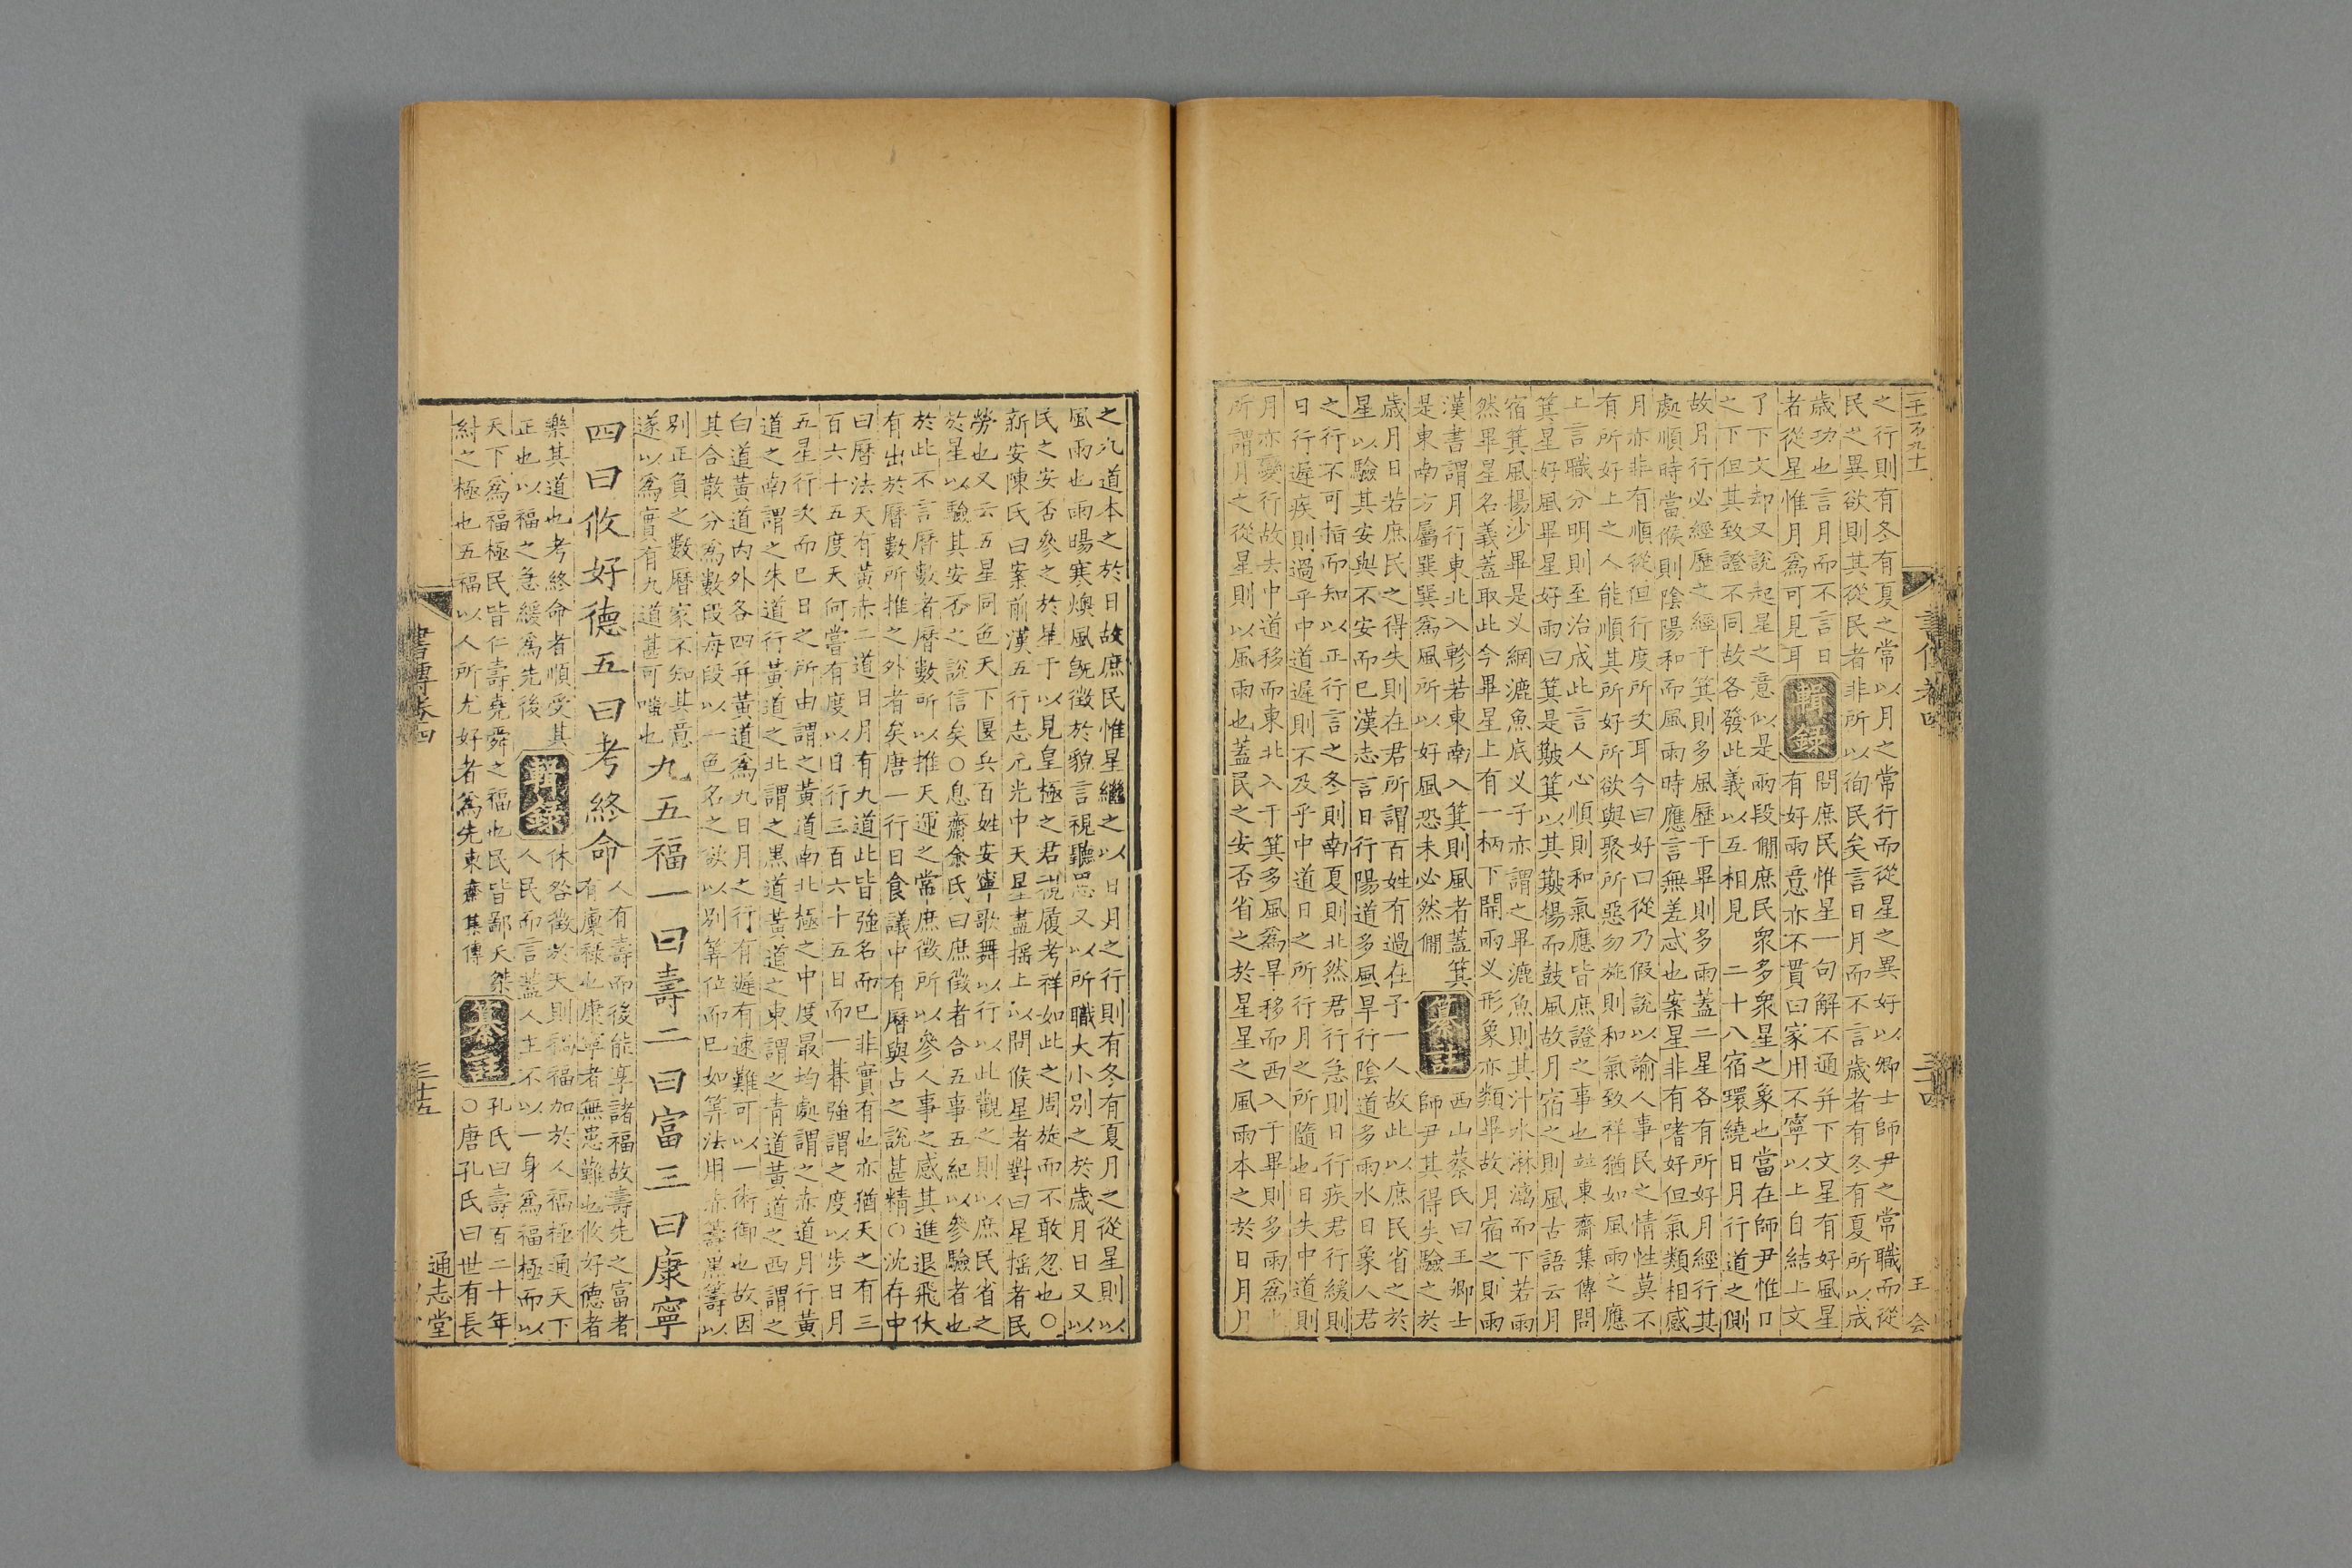 之行則有冬有夏之常以月之常行而從星之異好以卿士師尹之常職而從
民之異欲則其從民者非所以徇民矣言日月而不言歲者有冬有夏所以成
歲功也言月而不言日
者從星惟月爲可見耳
輯録
問庶民惟星一句解不通并下文星有好風星
有好雨意亦不貫曰家用不寧以上自結上文
了下文却又說起星之意似是兩段側庶民衆多衆星之象也當在師尹惟日
之下但其致證不同故各發此義以互相見 二十八宿環繞日月行道之側
故月行必經歷之經于箕則多風歷于畢則多雨蓋二星各有所好月經行其
處順時當候則陰陽和而風雨時應言無差忒也案星非有嗜好但氣類相感
月亦非有順從但行度所次耳今曰好曰從乃假說以諭人事民之情性莫不
有所好上之人能順其所好所欲與聚所惡勿施則和氣致祥猶如風雨之應
上言職分明則至治成此言人心順則和氣應皆庶證之事也並東齋集傳問
箕星好風畢星好雨曰箕是簸箕以其簸揚而鼓風故月宿之則風古語云月
宿箕風揚沙畢是义網漉魚底义子亦謂之畢漉魚則其汁水淋漓而下若雨
然畢星名義蓋取此今畢星上有一柄下開兩义形象亦類畢故月宿之則雨
漢書謂月行東北入軫若東南入箕則風者蓋箕
是東南方屬巽巽爲風所以好風恐未必然側
纂註
西山蔡氏曰王卿士
師尹其得失驗之於
歲月日若庶民之得失則在君所謂百姓有過在予一人故此以庶民省之於
星以驗其安與不安而已漢志言日行陽道多風旱行陰道多雨水日象人君
之行不可指而知以正行言之冬則南夏則北然君行急則日行疾君行緩則
日行遲疾則過乎中道遲則不及乎中道日之所行月之所隨也日失中道則
月亦變行故失中道移而東北入于箕多風爲旱移而西入于畢則多雨爲
所謂月之從星則以風雨也蓋民之安否省之於星星之風雨本之於日月月
王会
之九道本之於日故庶民惟星繼之以日月之行則有冬有夏月之從星則以
風雨也雨暘寒燠風旣徵於貌言視聽思又以所職大小別之於歲月日又以
民之安否參之於星于以見皇極之君視履考祥如此之周旋而不敢忽也○
新安陳氏曰案前漢五行志元光中天星盡搖上以問候星者對曰星搖者民
勞也又云五星同色天下偃兵百姓安寧歌舞以行以此觀之則以庶民省之
於星以驗其安否之說信矣○息齋余氏曰庶徵者合五事五紀以參驗者也
於此不言曆數者曆數所以推天運之常庶徵所以參人事之感其進退飛伏
有出於曆數所推之外者矣唐一行日食議中有曆與占之說甚精○沈存中
曰曆法天有黃赤二道日月有九道此皆強名而已非實有也亦猶天之有三
百六十五度天何嘗有度以日行三百六十五日而一朞強謂之度以步日月
五星行次而已日之所由謂之黃道南北極之中度最均處謂之赤道月行黃
道之南謂之朱道行黃道之北謂之黑道黃道之東謂之青道黃道之西謂之
白道黃道內外各四并黃道爲九日月之行有遲有速難可以一術御也故因
其合散分爲數段每段以一色名之欲以別筭位而已如筭法用赤籌黑籌以
別正負之數曆家不知其意
遂以爲實有九道甚可嗤也
九五福一曰壽二曰富三曰康寧
四曰攸好德五曰考終命
人有壽而後能享諸福故壽先之富者
有廩祿也康寧者無患難也攸好德者
樂其道也考終命者順受其
正也以福之急緩爲先後
輯録
休咎徵於天則禍福加於人福極通天下
人民而言蓋人主不以一身爲福極而以
天下爲福極民皆仁壽堯舜之福也民皆鄙夭桀
紂之極也五福以人所尤好者爲先東齋集傳
纂註
孔氏曰壽百二十年
○唐孔氏曰世有長
書傳卷四
三十五
通志堂